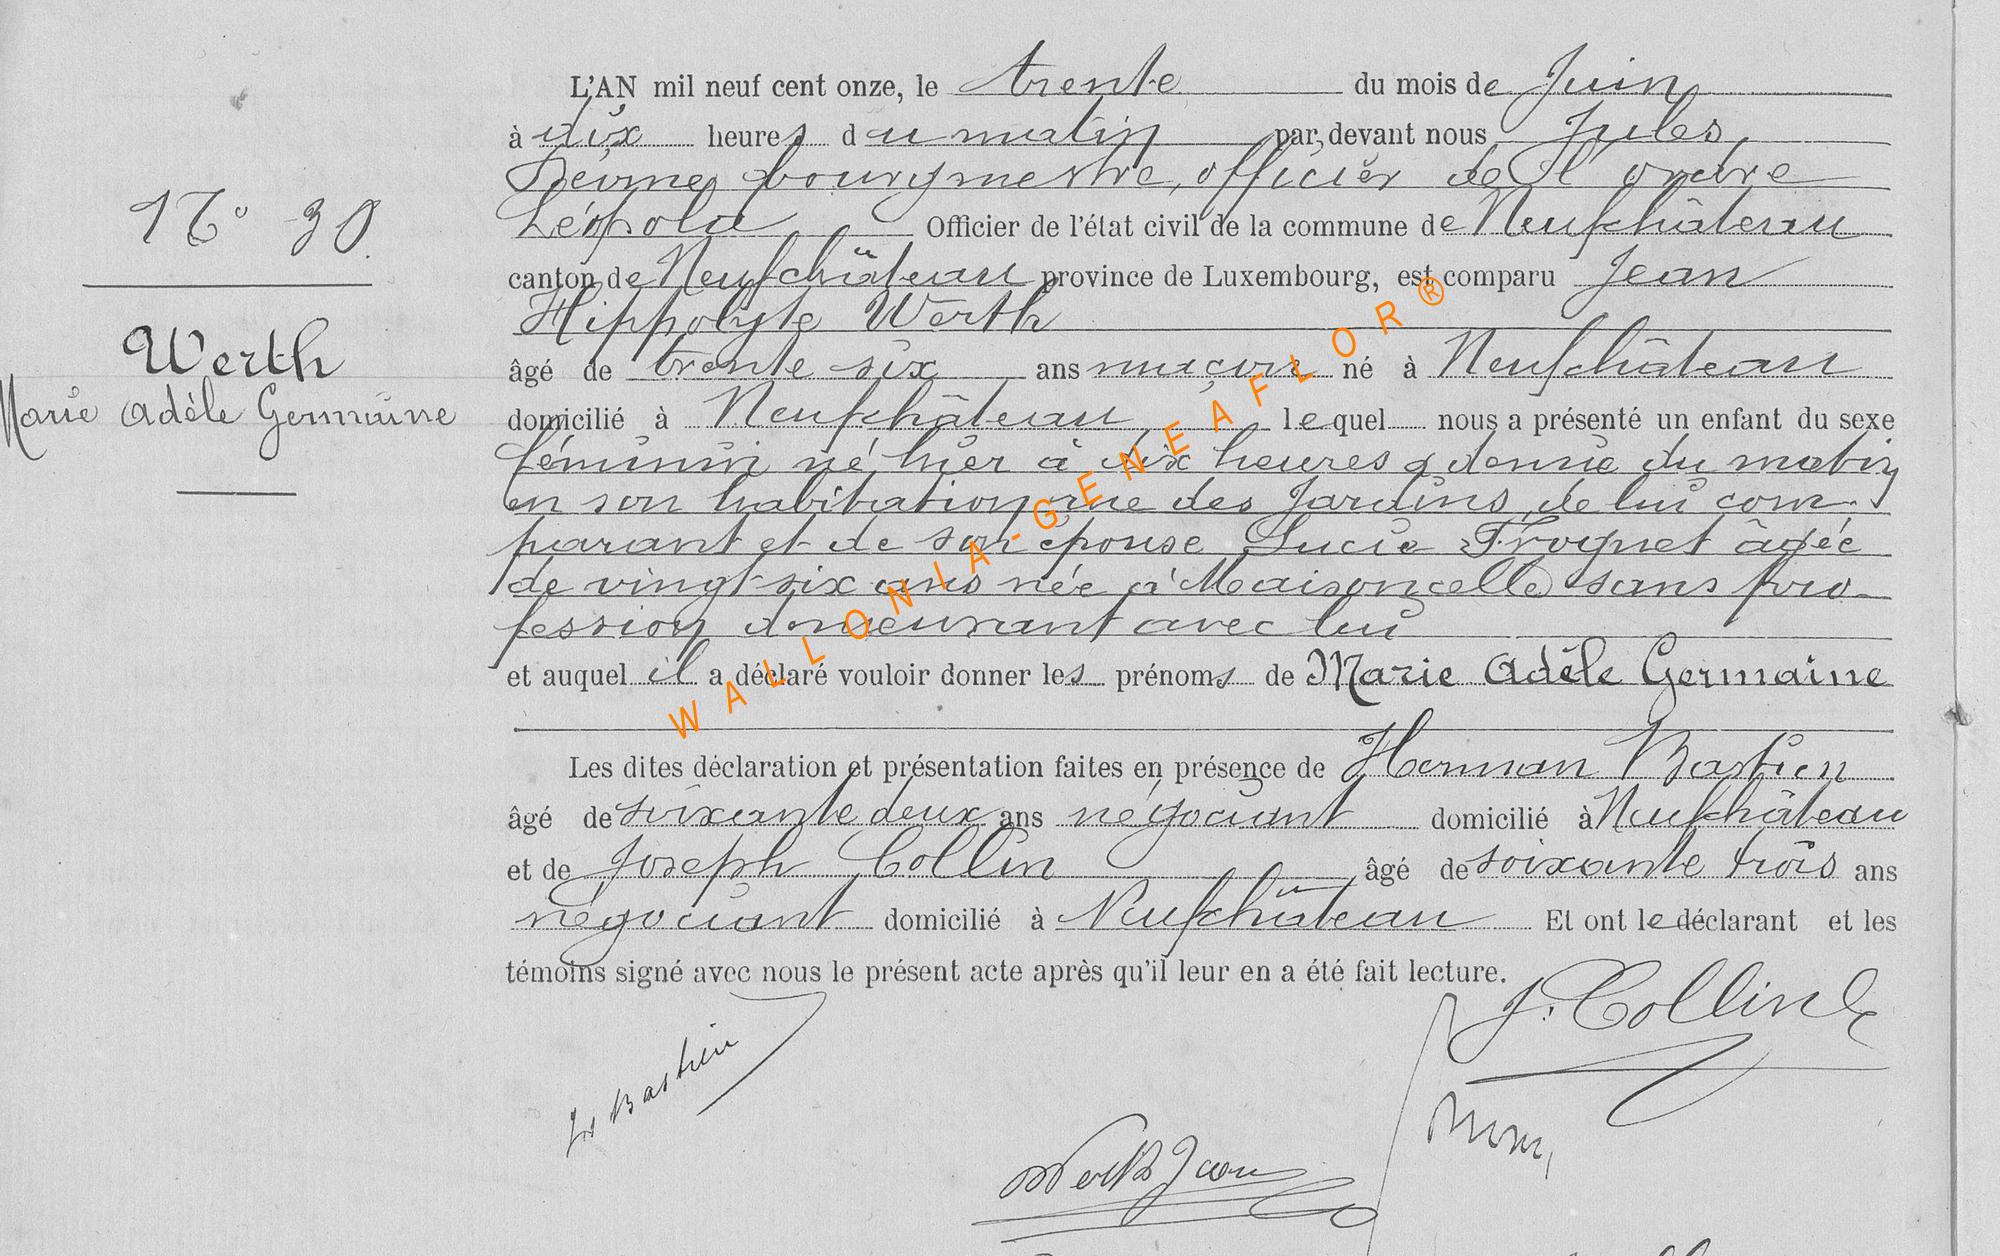 L'AN mil neuf cent onze, le trente du mois de Juin
à dix heures du matin par devant nous Jules
bourgmestre, officier de l'ordre
Léopold Officier de l'état civil de la commune de Neufchâteau
N° 30
canton de Neufchâteau province de Luxembourg, est comparu Jean
Hippolyte Werth
Werth
âgé de trente six ans maçon né à Neufchâteau
Marie Adèle Germaine
domicilié à Neufchâteau lequel nous a présenté un enfant du sexe
féminin né hier à dix heures & demie du matin
en son habitation rue des Jardins, de lui com-
parant et de son épouse Lucie Frognet âgée
de vingt-six ans née à Maisoncelle sans pro-
fession demeurant avec lui
et auquel il a déclaré vouloir donner les prénoms de Marie Adèle Germaine
WALLONIA-GENEAFLOR®
Les dites déclaration et présentation faites en présence de Herman Bastien
âgé de soixante deux ans négociant domicilié à Neufchâteau
et de Joseph Collin âgé de soixante trois ans
négociant domicilié à Neufchâteau Et ont le déclarant et les
témoins signé avec nous le présent acte après qu'il leur en a été fait lecture.
J. Collin
H Bastien
Werth Jean